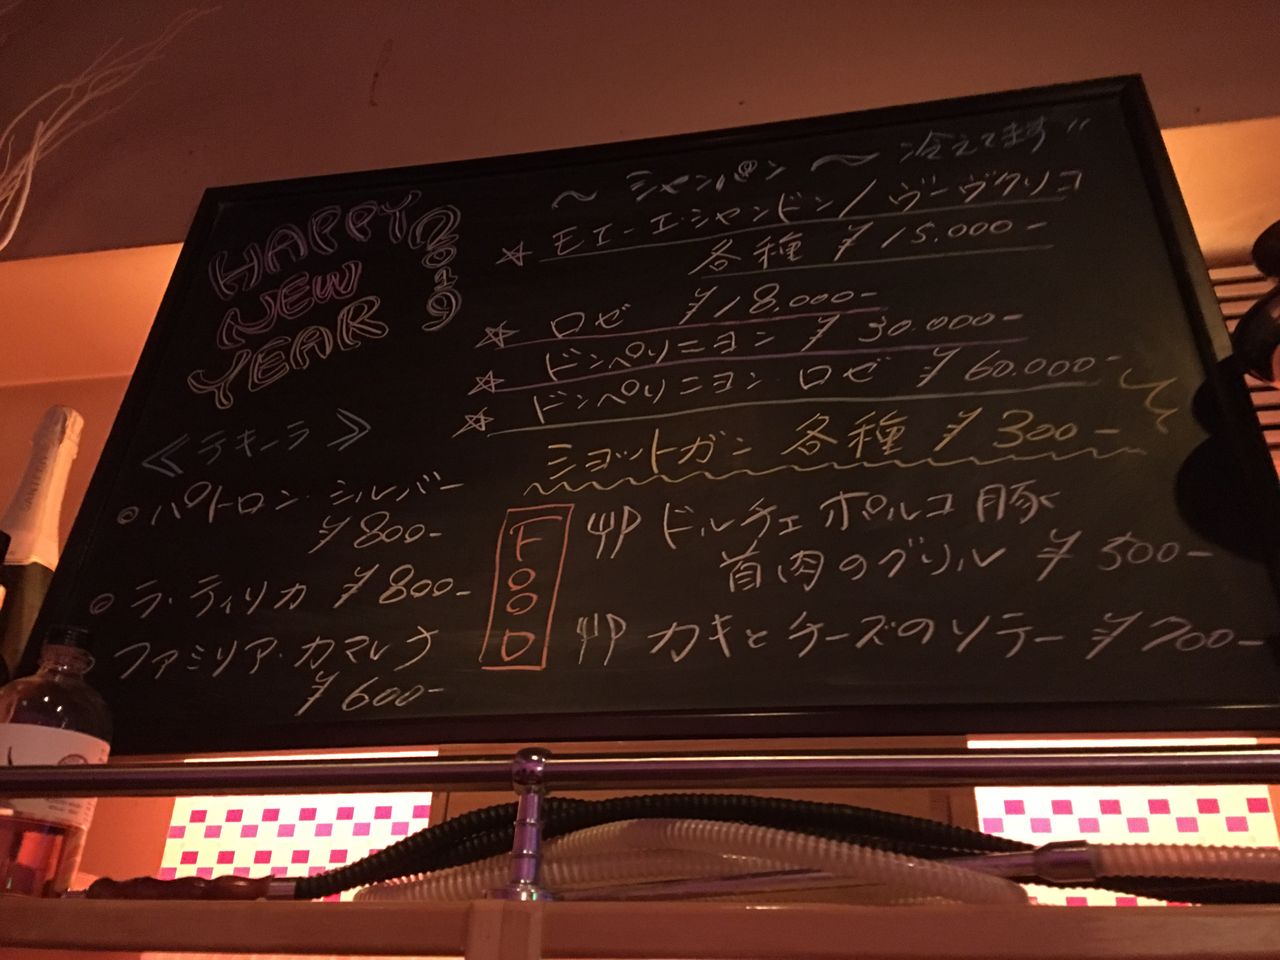 HAPPY
NEW
YEAR
2019
〜 シャンパン 〜 冷えてます"
☆ モエ・エ・シャンドン / ヴーヴクリコ
各種 ¥15.000-
☆ ロゼ ¥18.000-
☆ ドンペリニヨン ¥30.000-
☆ ドンペリニヨン・ロゼ ¥60.000-
ショットガン 各種 ¥300-
≪テキーラ≫
◎ パトロン・シルバー
¥800-
◎ ラ・ティリカ ¥800-
ファミリア・カマレナ
¥600-
FOOD
ドルチェポルコ豚
首肉のグリル ¥500-
カキとチーズのソテー ¥700-